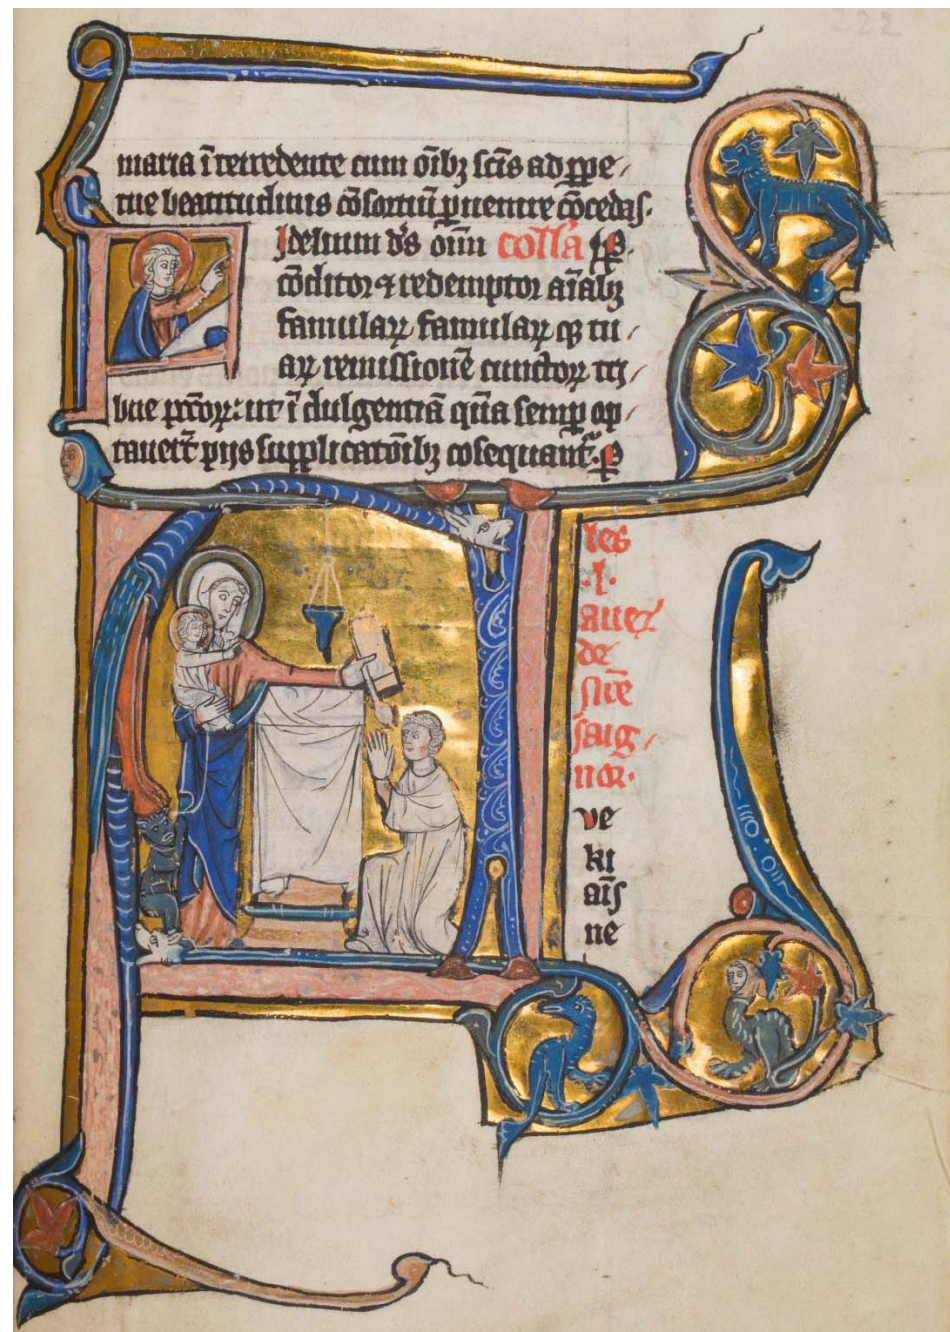 222
maria ĩtercedente cum oĩbꝫ scĩs ad ꝑpe/
tue beatitudinis cõsortiũ ꝑuenire cõcedas.
Idelium dẽs oĩm colla ꝑ.
cõditor ⁊ redemptor aĩabꝫ
famuloꝝ famulaꝝ qꝫ tu/
aꝝ remissionẽ cunctoꝝ tri/
bue pccõꝝ: ut ĩdulgentiã quã semꝑ op
tauerũt pijs supplicatõibꝫ cõsequant᷑. ꝑ
les
.l.
auez
de
nr̃e
saig/
nor.
ve
ki
aĩs
ne